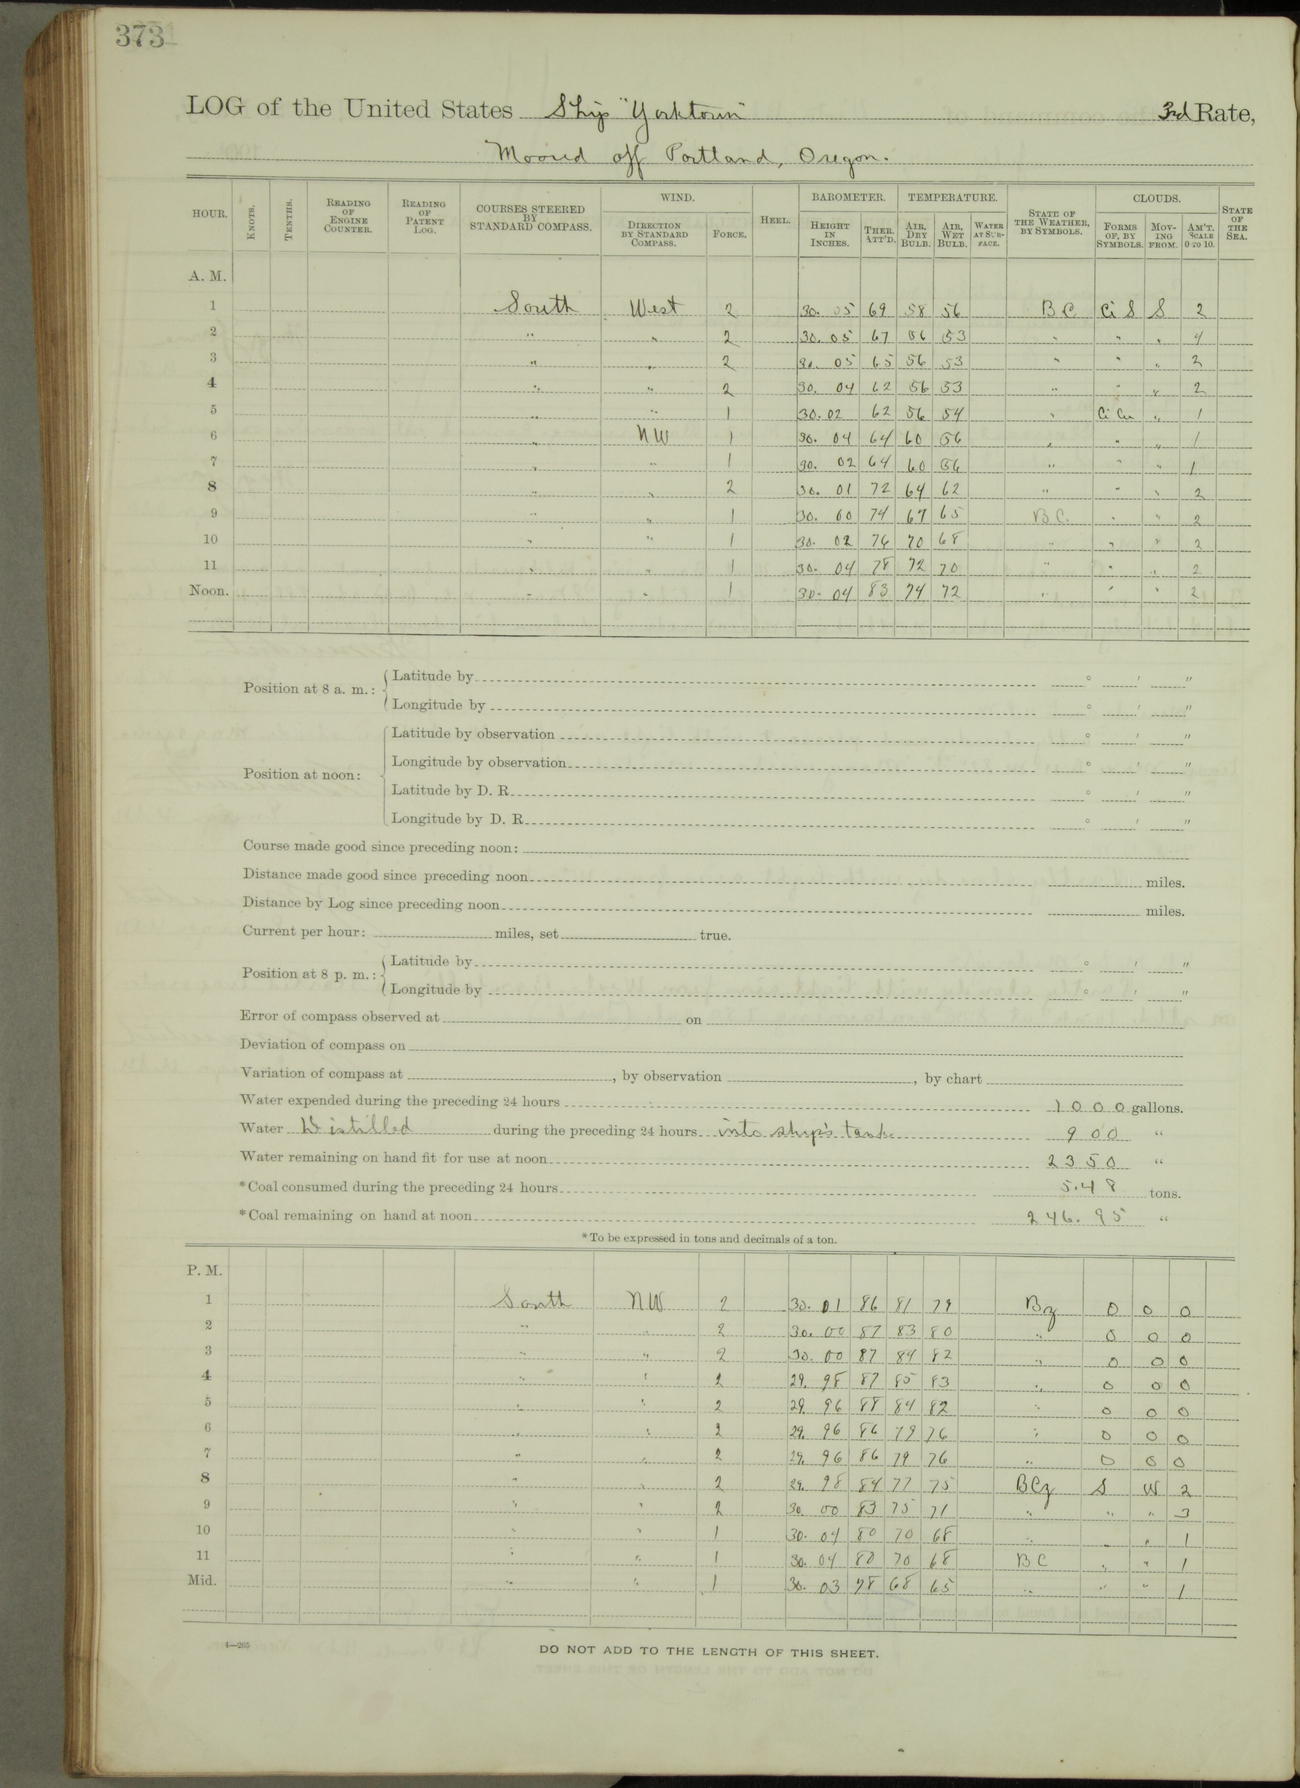 373
LOG of the United States Ship "Yorktown" 3rd Rate,
Moored off Portland, Oregon.
HOUR. KNOTS. TENTHS. READING OF ENGINE COUNTER. READING OF PATENT LOG. COURSES STEERED BY STANDARD COMPASS. WIND. DIRECTION BY STANDARD COMPASS. FORCE. HEEL. BAROMETER. HEIGHT IN INCHES. THER. ATT'D. TEMPERATURE. AIR, DRY BULB. AIR, WET BULB. WATER AT SURFACE. STATE OF THE WEATHER, BY SYMBOLS. CLOUDS. FORMS OF, BY SYMBOLS. MOVING FROM. AM'T. SCALE 0 TO 10. STATE OF THE SEA.
A. M.
1 South West 2 30. 05 69 58 56 B C Ci S S 2
2 " " 2 30. 05 67 56 53 " " " 4
3 " " 2 30. 05 65 56 53 " " " 2
4 " " 2 30. 04 62 56 53 " " " 2
5 " " 1 30. 02 62 56 54 " Ci Cu " 1
6 " NW 1 30. 04 64 60 56 " " " 1
7 " " 1 30. 02 64 60 56 " " " 1
8 " " 2 30. 01 72 64 62 " " " 2
9 " " 1 30. 00 74 67 65 B C. " " 2
10 " " 1 30. 02 76 70 68 " " " 2
11 " " 1 30. 04 78 72 70 " " " 2
Noon. " " 1 30. 04 83 74 72 " " " 2
Position at 8 a. m.: Latitude by ° ' "
Longitude by ° ' "
Position at noon: Latitude by observation ° ' "
Longitude by observation ° ' "
Latitude by D. R. ° ' "
Longitude by D. R. ° ' "
Course made good since preceding noon:
Distance made good since preceding noon miles.
Distance by Log since preceding noon miles.
Current per hour: miles, set true.
Position at 8 p. m.: Latitude by ° ' "
Longitude by ° ' "
Error of compass observed at on
Deviation of compass on
Variation of compass at , by observation , by chart
Water expended during the preceding 24 hours 1000 gallons.
Water Distilled during the preceding 24 hours into ship's tanks 900 "
Water remaining on hand fit for use at noon 2350 "
*Coal consumed during the preceding 24 hours 5.48 tons.
*Coal remaining on hand at noon 246.95 "
*To be expressed in tons and decimals of a ton.
P. M.
1 South NW 2 30. 01 86 81 79 Bz 0 0 0
2 " " 2 30. 00 87 83 80 " 0 0 0
3 " " 2 30. 00 87 84 82 " 0 0 0
4 " " 2 29. 98 87 85 83 " 0 0 0
5 " " 2 29. 96 88 84 82 " 0 0 0
6 " " 2 29. 96 86 79 76 " 0 0 0
7 " " 2 29. 96 86 79 76 " 0 0 0
8 " " 2 29. 98 84 77 75 BCz S W 2
9 " " 2 30. 00 83 75 71 " " " 3
10 " " 1 30. 04 80 70 68 " " " 1
11 " " 1 30. 04 80 70 68 B C " " 1
Mid. " " 1 30. 03 78 68 65 " " " 1
4—265
DO NOT ADD TO THE LENGTH OF THIS SHEET.